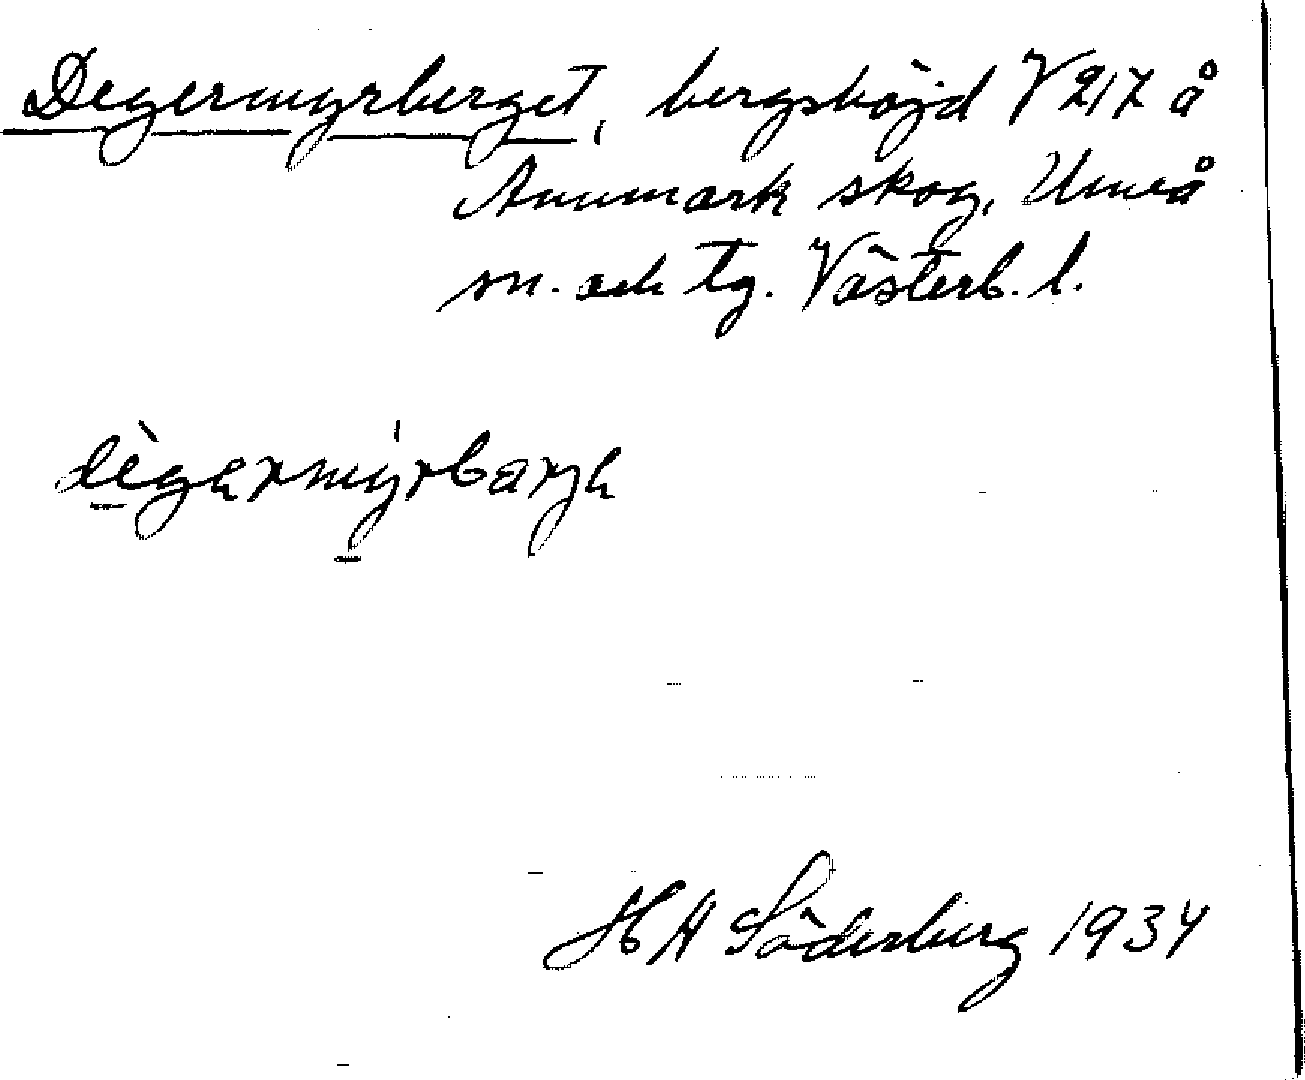 Degermyrberget, bergshöjd V 217 å
Anumark skog, Umeå
sn. och tg. Västerb. l.
dègərmýrbarjə
H A Söderberg 1934